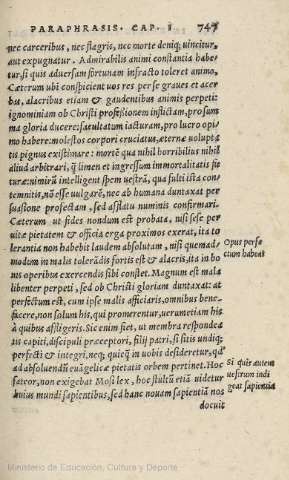 PARAPHRASIS. CAP. I 747
nec carceribus, nec flagris, nec morte deniq; uincitur,
aut expugnatur. Admirabilis animi constantia habe/
tur, si quis aduersam fortunam infracto toleret animo,
Cæterum ubi conspicient uos res per se graues et acer
bas, alacribus etiam & gaudentibus animis perpeti:
ignominiam ob Christi professionem inflictam, pro sum
ma gloria ducere: facultatum iacturam, pro lucro opi/
mo habere: molestos corpori cruciatus, æternæ volupta
tis pignus existimare: mortē qua nihil horribilius nihil
aliud arbitrari, q̄ limen et ingressum immortalitatis fu
turæ: nimirū intelligent spem uestrā, qua fulti ista con
temnitis, nō esse uulgarē, nec ab humana duntaxat per
suasione profectam, sed afflatu numinis confirmari.
Cæterum ut fides nondum est probata, nisi sese per
uitæ pietatem & officia erga proximos exerat, ita to
lerantia non habebit laudem absolutam, nisi quemad/
modum in malis tolerādis fortis est & alacris, ita in bo
nis operibus exercendis sibi constet. Magnum est mala
libenter perpeti, sed ob Christi gloriam duntaxat: at
perfectum est, cum ipse malis afficiaris, omnibus bene/
facere, non solum his, qui promerentur, uerumetiam his
à quibus affligeris. Sic enim fiet, ut membra respondeā
tis capiti, discipuli præceptori, filij patri, si sitis undiq;
perfecti & integri, neq; quicq̄ in uobis desideretur, qd'
ad absoluendū euāgelicæ pietatis orbem pertinet. Hoc
fateor, non exigebat Mosi lex, hoc stultū etiā uidetur
huius mundi sapientibus, sed hanc nouam sapientiā nos
docuit
Opus perfe
ctum habeat
Si quis autem
uestrum indi
geat sapientia
Ministerio de Educación, Cultura y Deporte